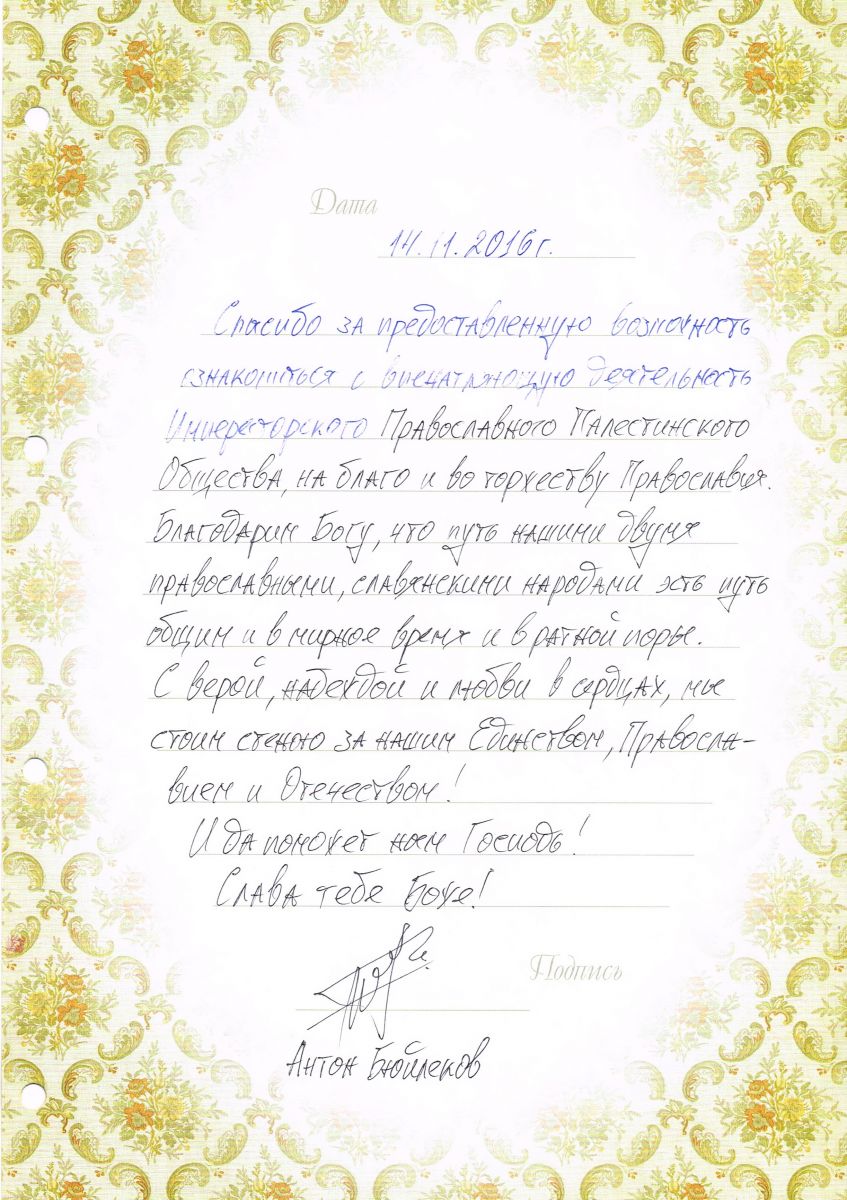 Дата
14.11.2016 г.
Спасибо за предоставленную возможность
ознакомиться с впечатляющую деятельность
Императорского Православного Палестинского
Общества, на благо и во торжеству Православия.
Благодарим Богу, что путь нашими двумя
православными, славянскими народами эсть путь
общим и в мирное время и в ратной поры.
С верой, надеждой и любви в сердцах, мы
стоим стеною за нашим Единством, Правосла-
вием и Отечеством!
И да поможет нам Господь!
Слава тебе Боже!
Подпись
Антон Бюйлеков